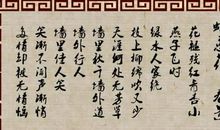 花褪残红青杏小
燕子飞时
绿水人家绕
枝上柳绵吹又少
天涯何处无芳草
墙里秋千墙外道
墙外行人
墙里佳人笑
笑渐不闻声渐悄
多情却被无情恼